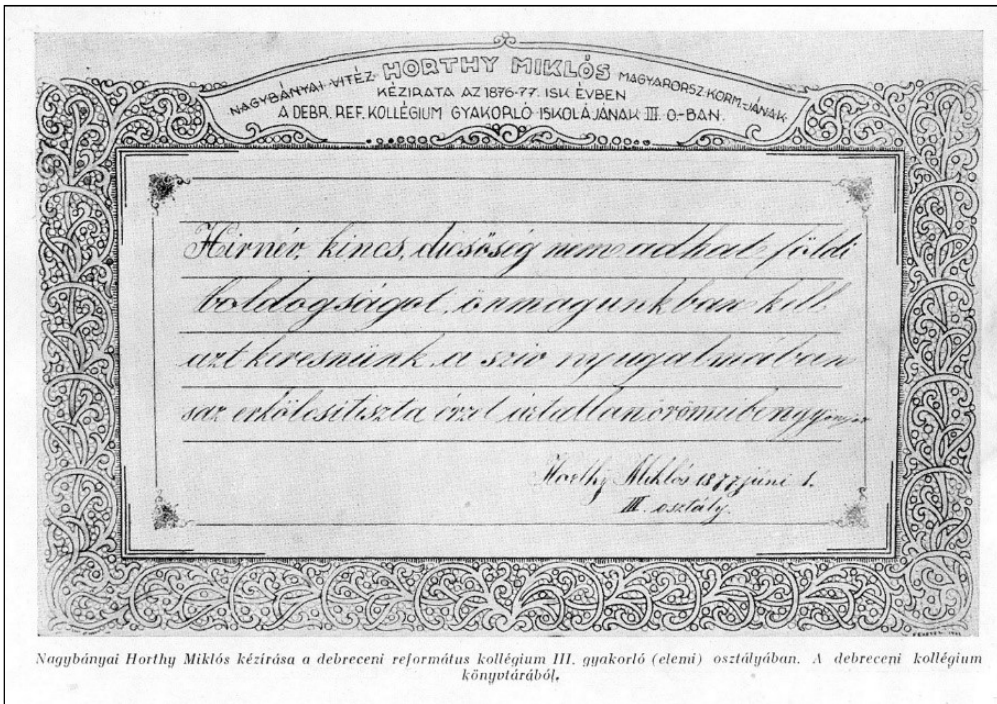 NAGYBÁNYAI VITÉZ HORTHY MIKLÓS MAGYARORSZ. KORM.-JÁNAK
KÉZIRATA AZ 1876-77. ISK. ÉVBEN
A DEBR. REF. KOLLÉGIUM GYAKORLÓ ISKOLÁJÁNAK III. O.-BAN.
Hirnév, kincs, dicsőség nem adhat földi
boldogságot, önmagunkban kell
azt keresnünk a sziv nyugalmában
s az erkölcsi tiszta érzet ártatlan örömeiben
Horthy Miklós 1877 júni 1.
III. osztály.
Nagybányai Horthy Miklós kézírása a debreceni református kollégium III. gyakorló (elemi) osztályában. A debreceni kollégium
könyvtárából.